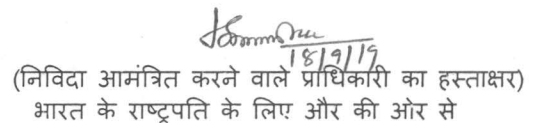 18/9/19
(निविदा आमंत्रित करने वाले प्राधिकारी का हस्ताक्षर)
भारत के राष्ट्रपति के लिए और की ओर से